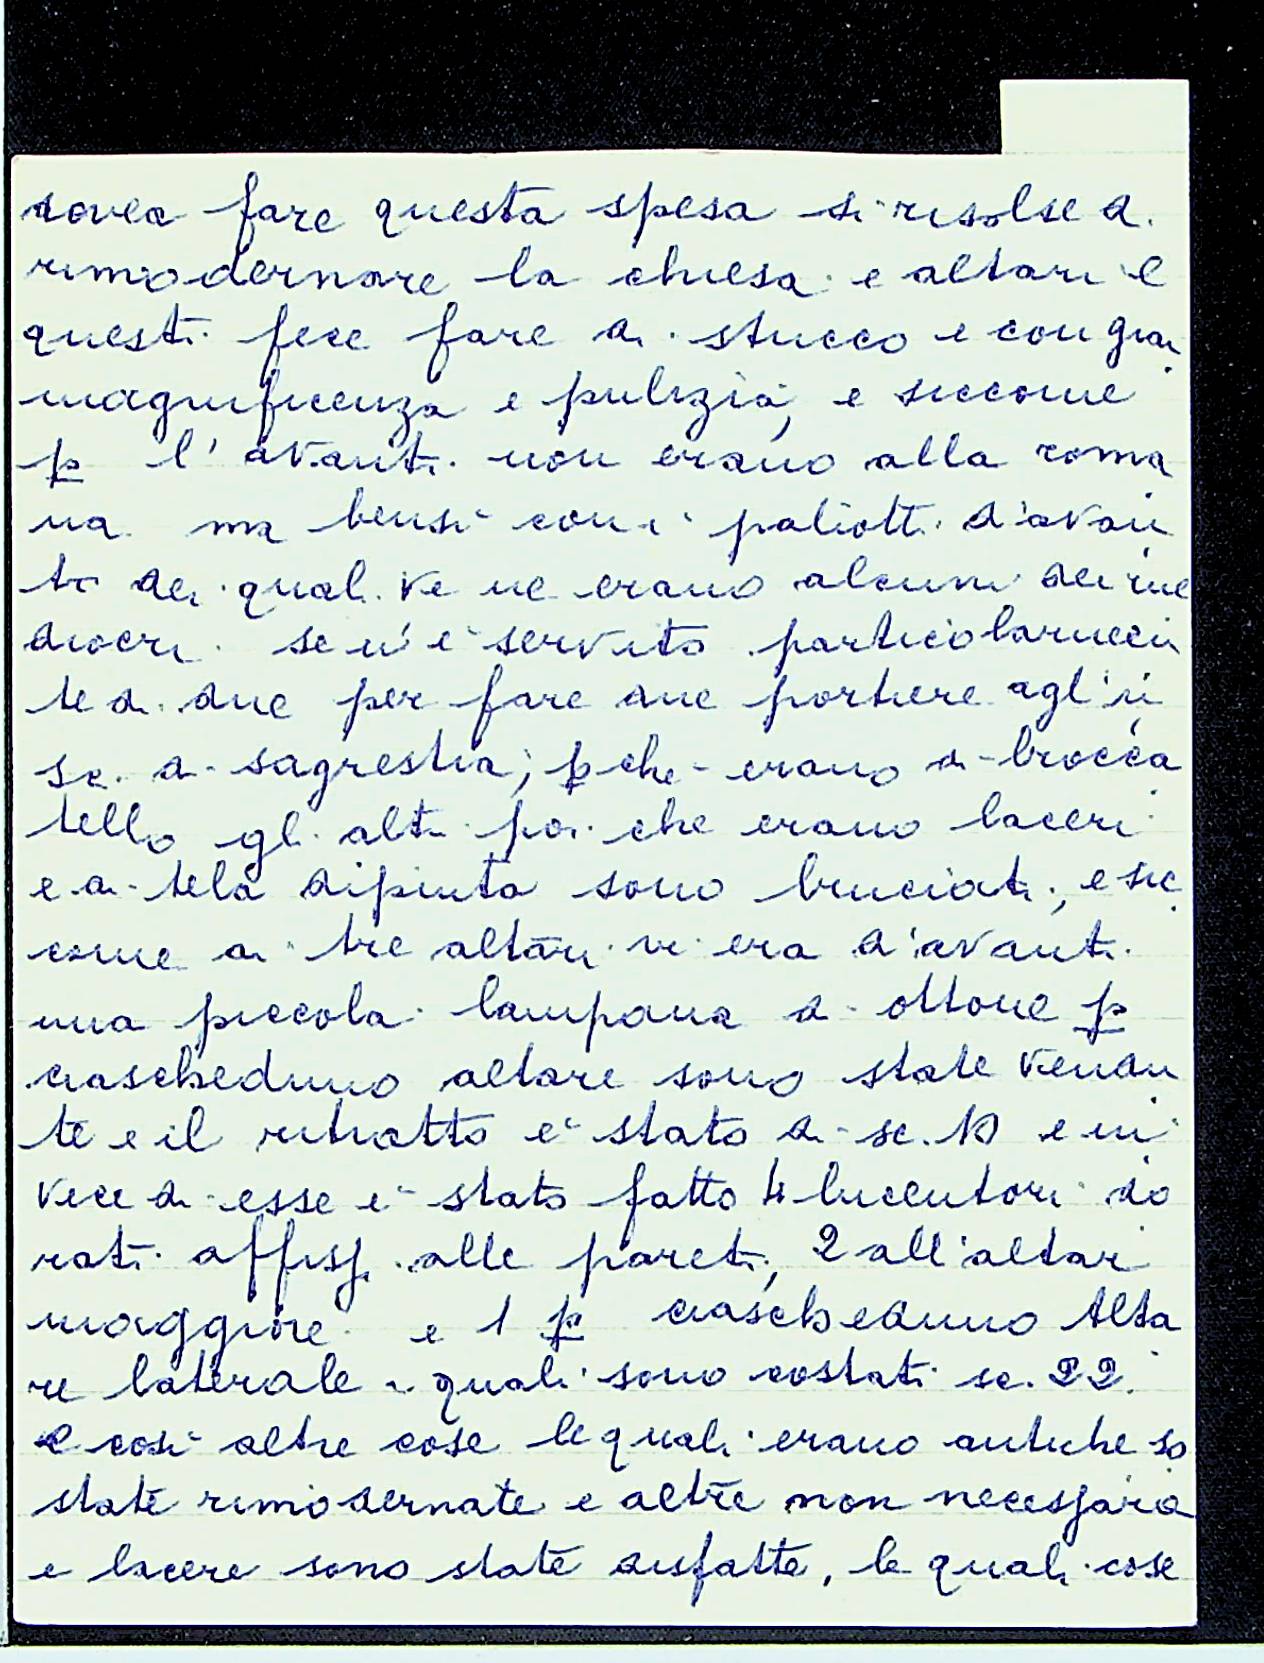 dovea fare questa spesa si risolse di
rimodernare la chiesa e altari e
questi fece fare di stucco e con gran
magnificenza e pulizia, e siccome
p l'avanti non erano alla roma
na ma bensi con i paliotti d'avan
ti dei quali ve ne erano alcuni dei me
diocri se n'è servito particolarmen
te di due per fare due portiere agl'in
di sagrestia; pche erano di brocca
tello gl'altri poi che erano laceri
e di tela dipinta sono bruciati; e sic
come a tre altari vi era d'avanti
una piccola lampana di ottone p
ciascheduno altare sono state vendu
te e il ritratto è stato di sc. 10 e in
vece di esse è stato fatto 4 lucentori do
rati affissi alle pareti, 2 all'altar
maggiore e 1 p ciascheduno Alta
re laterale i quali sono costati sc. 22.
E così altre cose le quali erano antiche so
state rimodernate e altre non necessarie
e lacere sono state disfatte, le quali cose